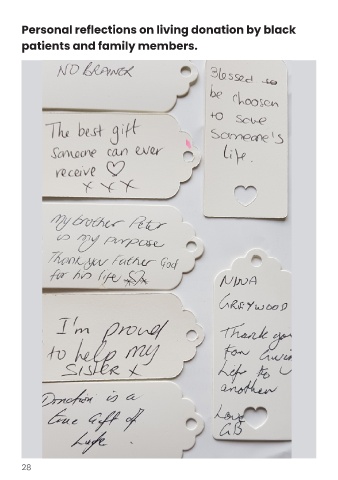 Personal reflections on living donation by black
patients and family members.
NO BRAINER
The best gift
someone can ever
receive ♡
x x x
My brother Peter
is my purpose
Thank you Father God
for his life
I'm proud
to help my
SISTER x
Donation is a
true Gift of
Life.
Blessed to
be choosen
to save
Someone's
life.
NINA
GREYWOOD
Thank you
For
Life to
another
Love
GB
28